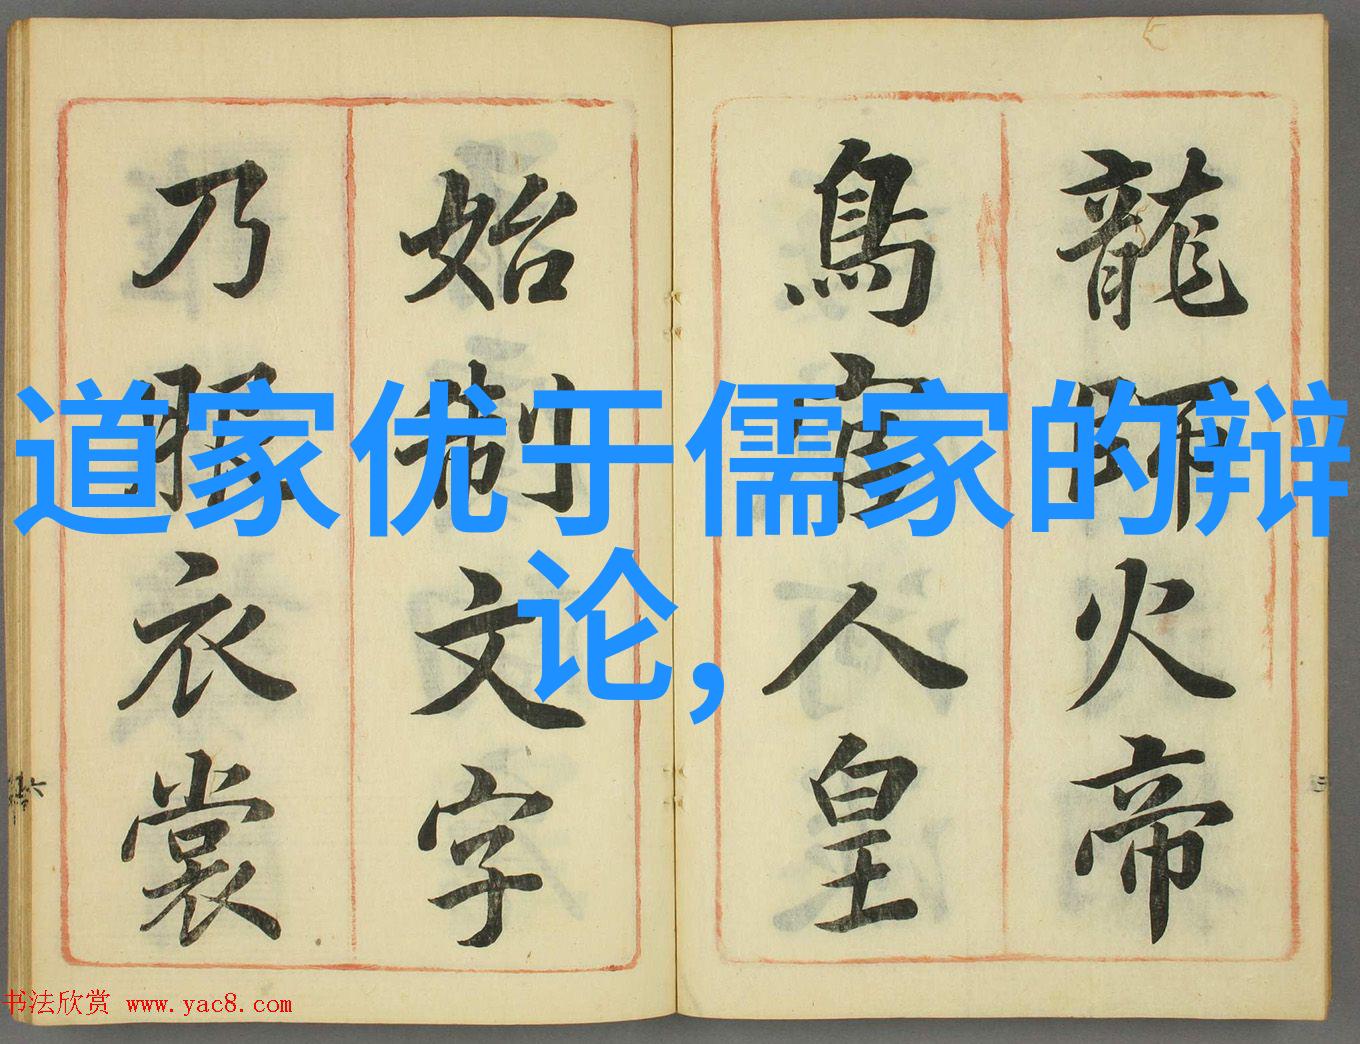 龍師火帝
鳥官人皇
始制文字
乃服衣裳
道家优于儒家的辩
论,
书法欣赏 www.yac8.com